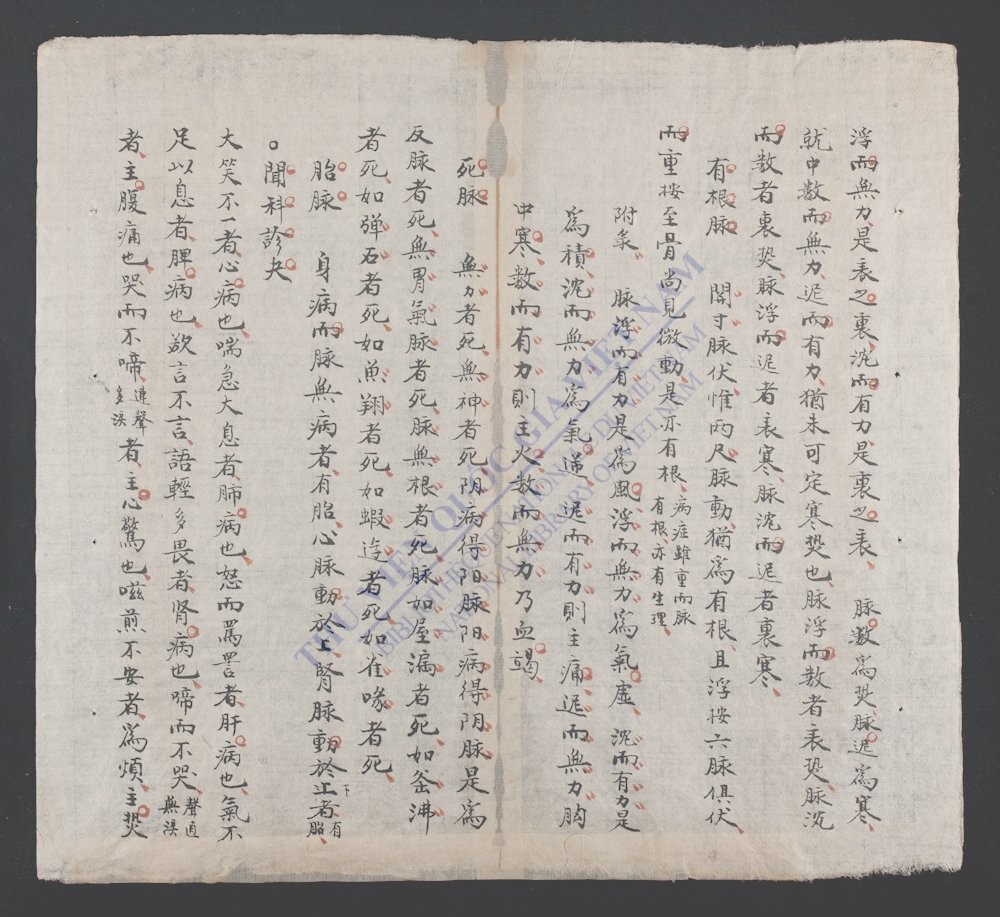 浮而無力是表之裏沈而有力是裏之表 脉数為熨脉迟為寒
就中数而無力迟而有力猶未可定寒熨也脉浮而数者表熨脉沈
而数者裏熨脉浮而迟者表寒脉沈而迟者裏寒
有根脉 関寸脉伏惟两尺脉動猶為有根且浮按六脉俱伏
而重按至骨尚見微動是亦有根 病症雖重而脉有根亦有生理
附象 脉浮而有力是為風浮而無力為氣虛 沈而有力是
為積沈而無力為氣 迟而有力則主痛迟而無力
中寒数而有力則主火数而無力乃血竭
死脉 無力者死無神者死阴病得阳脉阳病得阴脉是為
反脉者死無胃氣脉者死脉無根者死脉如屋漏者死如釜沸
者死如弹石者死如魚翔者死如蝦逰者死如雀啄者死
胎脉 身病而脉無病者有胎心脉動於上腎脉動於下者有胎
聞科診夬
大笑不一者心病也喘急大息者肺病也怒而罵詈者肝病也氣不
足以息者脾病也欲言不言語輕多畏者肾病也啼而不哭 聲直無淚
者主腹痛也哭而不啼 連聲多淚 者主心驚也嗞煎不安者為煩主熨
THƯ VIỆN QUỐC GIA VIỆT NAM
BIBLIOTHÈQUE NATIONALE DU VIETNAM
NATIONAL LIBRARY OF VIETNAM